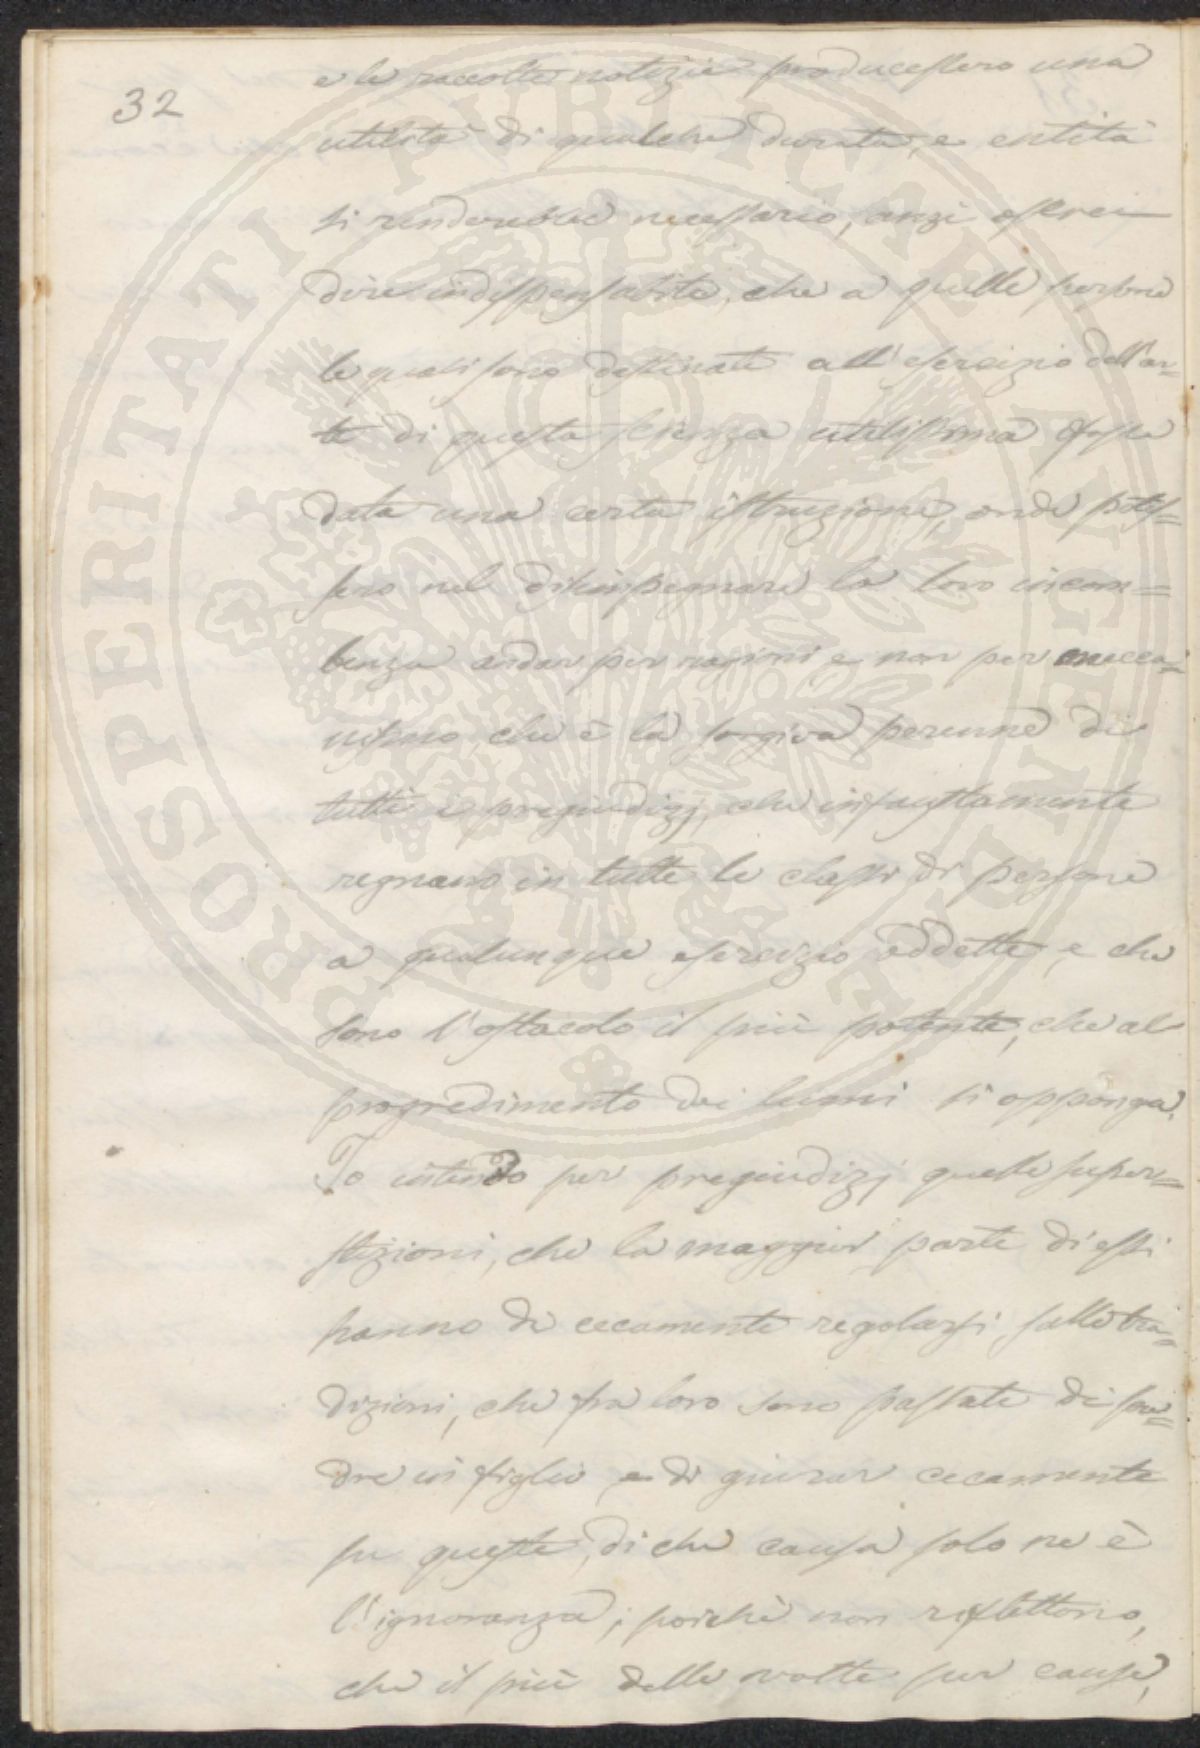 32
e le raccolte notizie producessero una
utilità di qualche durata, e entità
si renderebbe necessario, anzi
dire indispensabile, che a quelle persone
le quali sono destinate all'esercizio dell'ar=
te di questa scienza utilissima fosse
data una certa istruzione, onde potes=
sero nel disimpegnare la loro incom=
benza andar per ragioni e non per mecca=
nismo, che è la sorgiva perenne di
tutti i pregiudizj, che infaustamente
regnano in tutte le classi di persone
a qualunque esercizio addette, e che
sono l'ostacolo il più potente, che al
progredimento dei lumi si opponga.
Io intendo per pregiudizj quelle super=
stizioni, che la maggior parte di essi
hanno di cecamente regolarsi sulle tra=
dizioni, che fra loro sono passate di pa=
dre in figlio e di giurar cecamente
su queste, di che causa solo ne è
l'ignoranza; poichè non riflettono,
che il più delle volte per cause,
PROSPERITATI PVBLICAE AVGENDAE